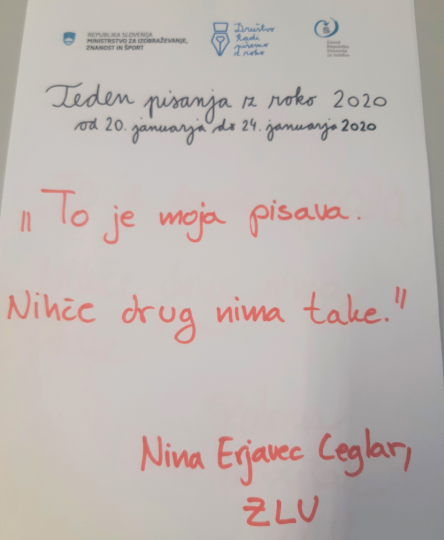 REPUBLIKA SLOVENIJA
MINISTRSTVO ZA IZOBRAŽEVANJE,
ZNANOST IN ŠPORT
Društvo
Radi
pišemo
z roko
Teden pisanja z roko 2020
od 20. januarja do 24. januarja 2020
"To je moja pisava.
Nihče drug nima take."
Nina Erjavec Ceglar,
ZLU